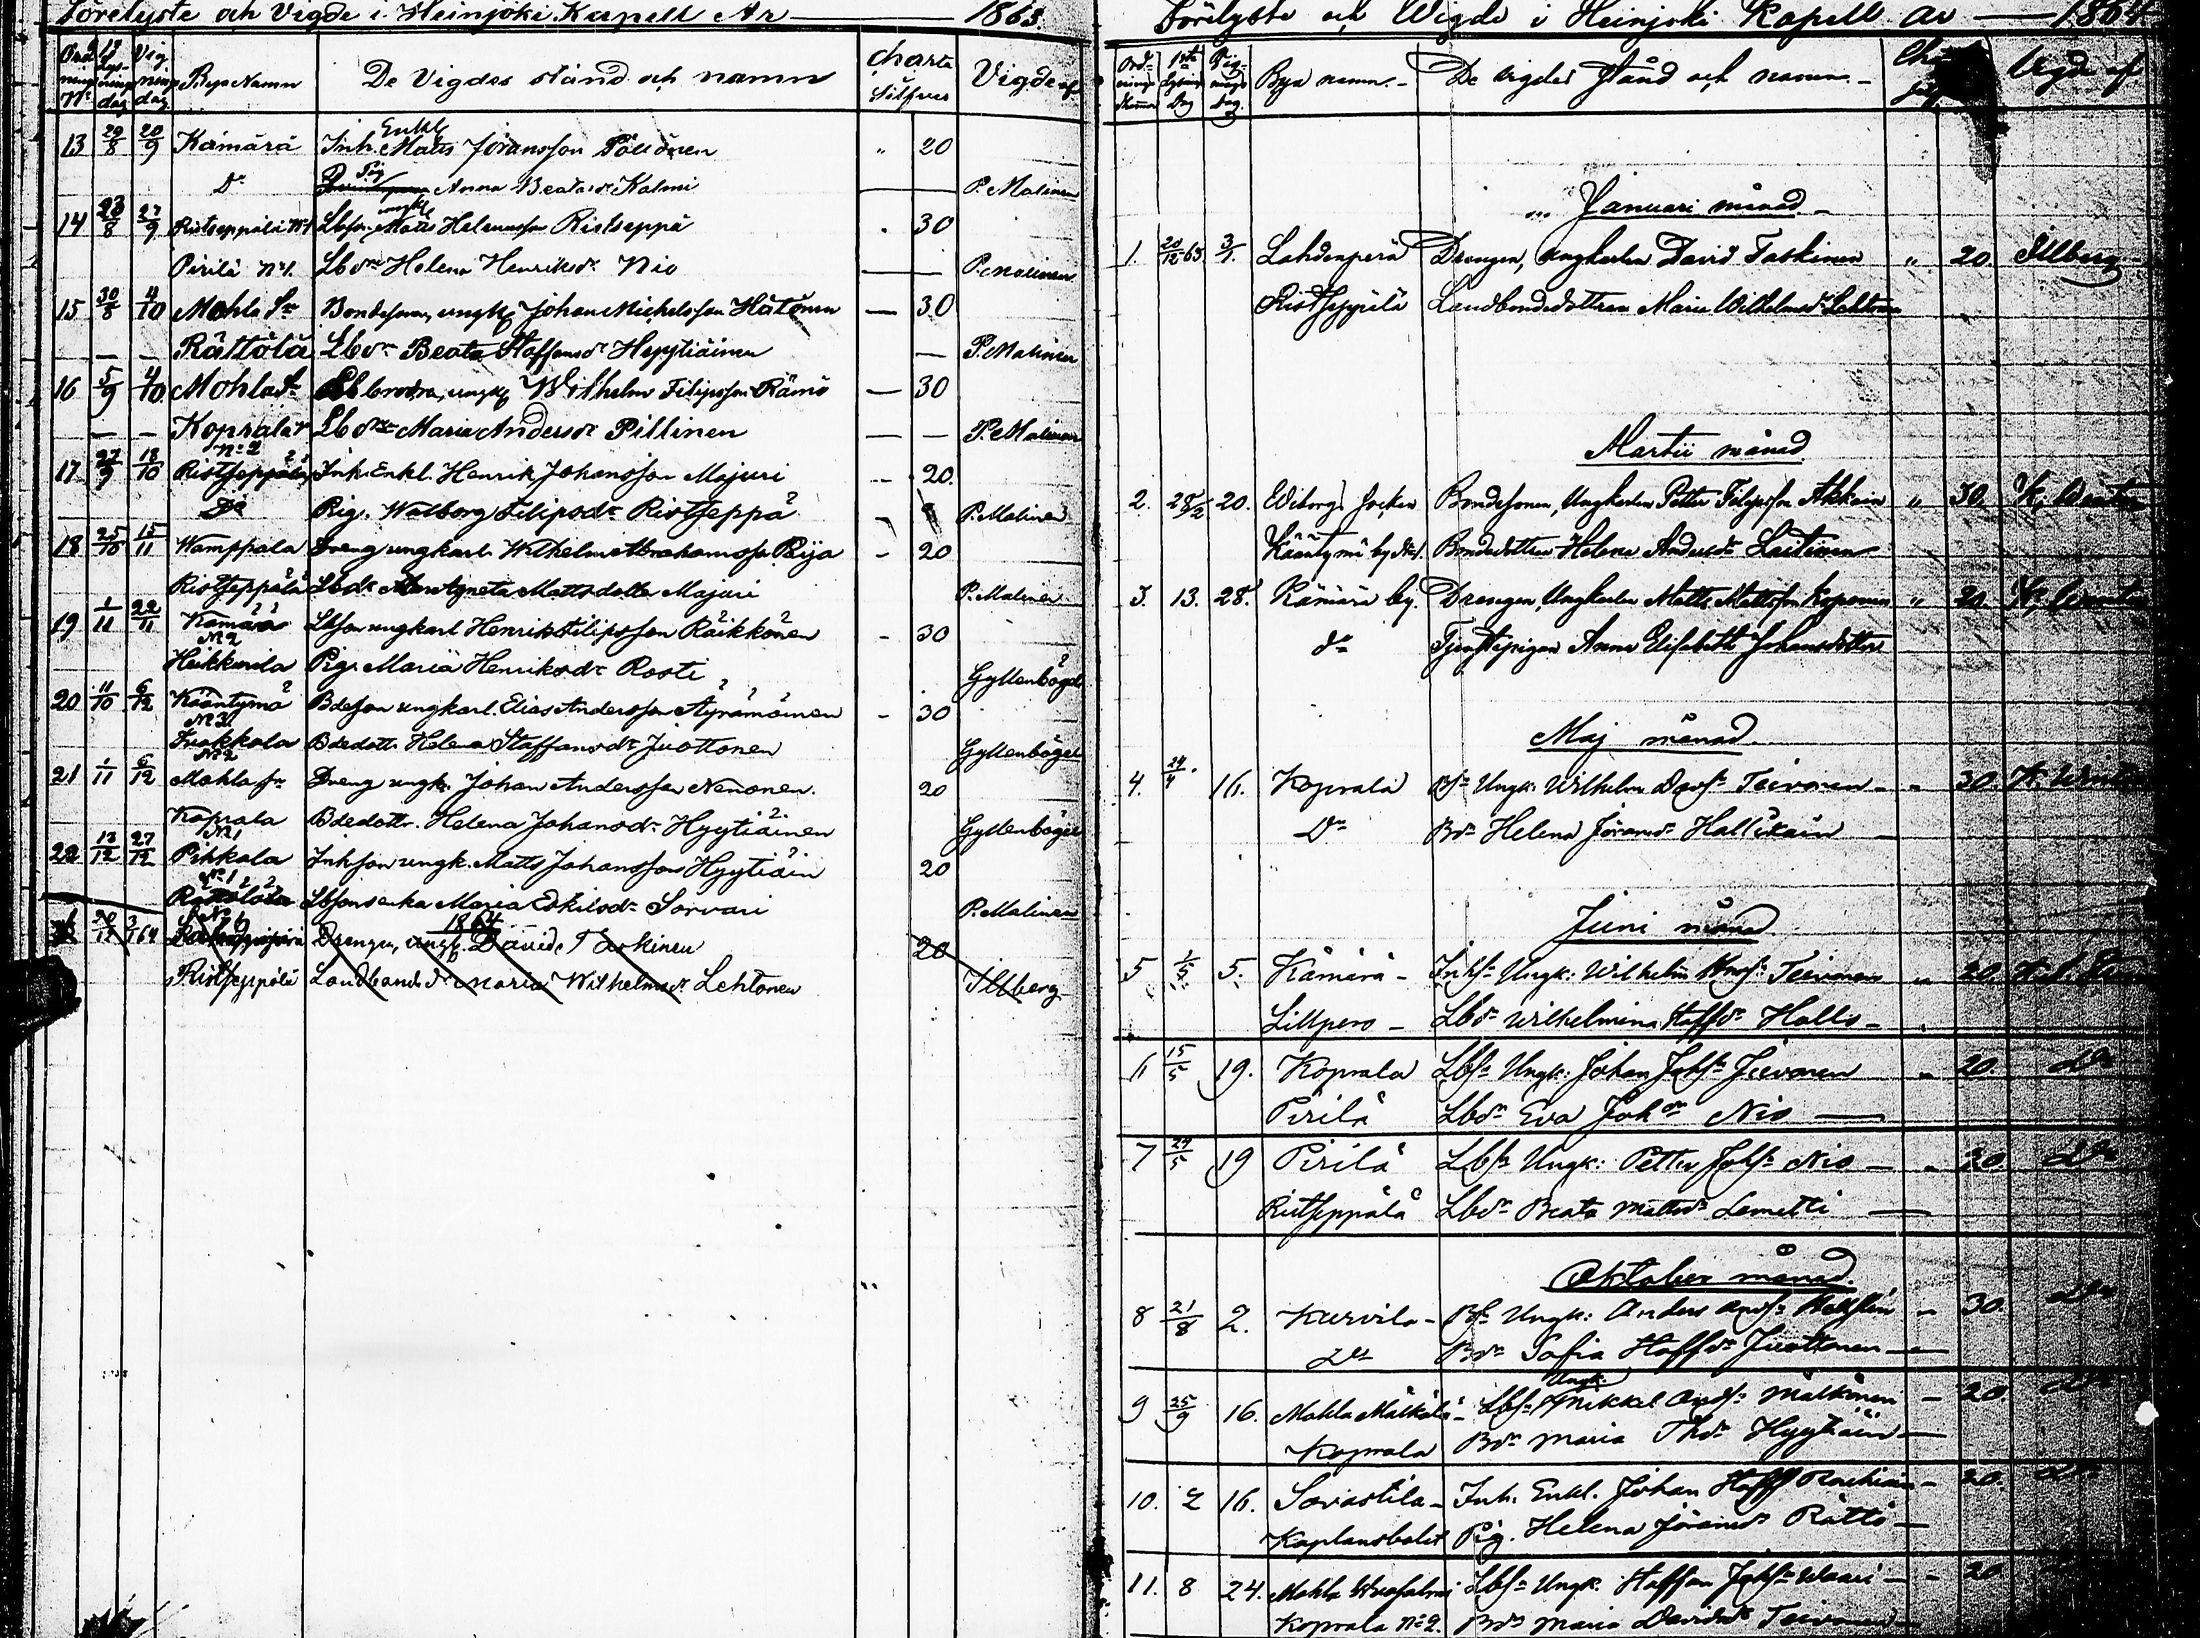 Förelyste och Vigde i Heinjoki Kapell År 1863.
Ordnings No Lysningsdag Vigningsdag Byns Namn De Vigdes stånd och namn Charta Silfver Vigde af
13 29/8 20/9 Kämärä Inh. Enkl Matts Jöransson Pöllönen " 20
Do Pig Anna Beata dr Kalmi P. Malinen
14 23/8 27/9 Ristseppälä No 1 Lbson ungk Matts Helenusson Ristseppä . 30
Pirilä No 1. Lbdr Helena Henriksdr Nio P. Malinen
15 30/8 4/10 Mohla Sn Bondeson, ungk Johan Michelsson Hätönen — 30
— — Rättölä Lbdr Beata Staffansdr Hyytiäinen — P. Malinen
16 5/9 4/10 Mohla Sn Lbbrodren, ungk Wilhelm Filipsson Rämö — 30
— — Koprala Lbdr Maria Andersdr Pillinen — — P. Malinen
17 27/9 18/10 Ristseppälä No 2 Inh. Enkl. Henrik Johansson Majuri — 20.
Do Pig. Walborg Filipsdr Ristseppä P. Malinen
18 25/10 15/11 Wamppala Dreng ungkarl Wilhelm Abrahamsson Pija - 20
Ristseppälä Lbdr Agneta Mattsdotter Majuri P. Malinen
19 1/11 22/11 Kämärä Lbson ungkarl Henrik Filipsson Räikkönen - 30
No 2 Heikkurila Pig. Maria Henriksdr Rosti Gyllenbögel
20 11/10 6/12 Kääntymä Bdeson ungkarl. Elias Andersson Äyrämöinen - 30
No 3. Frakkala Bdedott. Helena Staffansdr Juottonen Gyllenbögel
21 1/11 6/12 No 2 Mohla sn Dreng ungk. Johan Andersson Nenonen. 20
Koprala Bdedott. Helena Johansdr Hyytiäinen Gyllenbögel
22 13/12 27/12 No 1 Pihkala Inhson ungk. Matts Johansson Hyytiäin 20
No 1 Rättölä Lbsonsenka Maria Eskilsdr Sorvari P. Malinen
1864
20/12 3/1 64 Drengen, ungk. David Taskinen 20
Ristseppälä Landbondedr Maria Wilhelmsdr Lehtonen Illberg
Förelyste och Wigde i Heinjoki Kapell År — 1864
Ordnings Numro 1sta Lysnings Dag Vignings Dag Bya namn. De vigdes stånd och namn. Vigde af
Januari månad
1. 20/12 63 3/1. Lahdenperä Drengen, Ungkarlen David Taskinen " 20. Illberg
Ristseppälä Landbondedottren Maria Wilhelmsdr Lehtonen
Martii månad
2. 28/2 20. Wiborgs Socken Bondesonen, Ungkarlen Petter Filipsson " 30.
Kääntymä by No 1. Bondedottren Helena Andersdr Lastinen
3. 13. 28. Kämärä by. Drengen, Ungkarlen Matts Mattsson Koponen " 20.
do Tjenstepigan Anna Elisabeth Johansdotter
Maj månad.
4. 24/4. 16. Koprala Bsn Ungk: Wilhelm Davsn Teivonen - " 30.
Do Bdr Helena Jöransdr Hallikäin —
Juni månad
5 1/5 5. Kämärä - Inhsn Ungk: Wilhelm Teivonen " 20.
Lillpero - Lbdr Wilhelmina Staffdr Hallo -
6 15/5 19. Koprala Lbsn Ungk: Johan Johsn Teivonen " 20. Do
Pirilä Lbdr Eva Johdr Nio —
7 29/5 19 Pirilä Lbsn Ungk: Petter Johsn Nio — " 20. Do
Ristseppälä Lbdr Beata Mattsdr Lemetti —
Oktober månad.
8 21/8 2. Kurvila - Bsn Ungk: Anders Andsn - 30. Do
Do Bdr Sofia Staffdr Juottonen —
9 25/9 16. Mohla Mälkölä - Lbsn Ungk: Mikkel Andsn Mälkönen - 20. Do
Koprala Bdr Maria Thdr Hyytiäin —
10. 2 16. Savastila - Inh. Enkl. Johan Staffs - 20. Do
Kaplansbolet Pig. Helena Jöransdr Rättö —
11. 8 24. Mohla Lbsn Ungk. Staffan Johsn - 20
Koprala No 2. Bdr Maria Davidsdr Teivonen